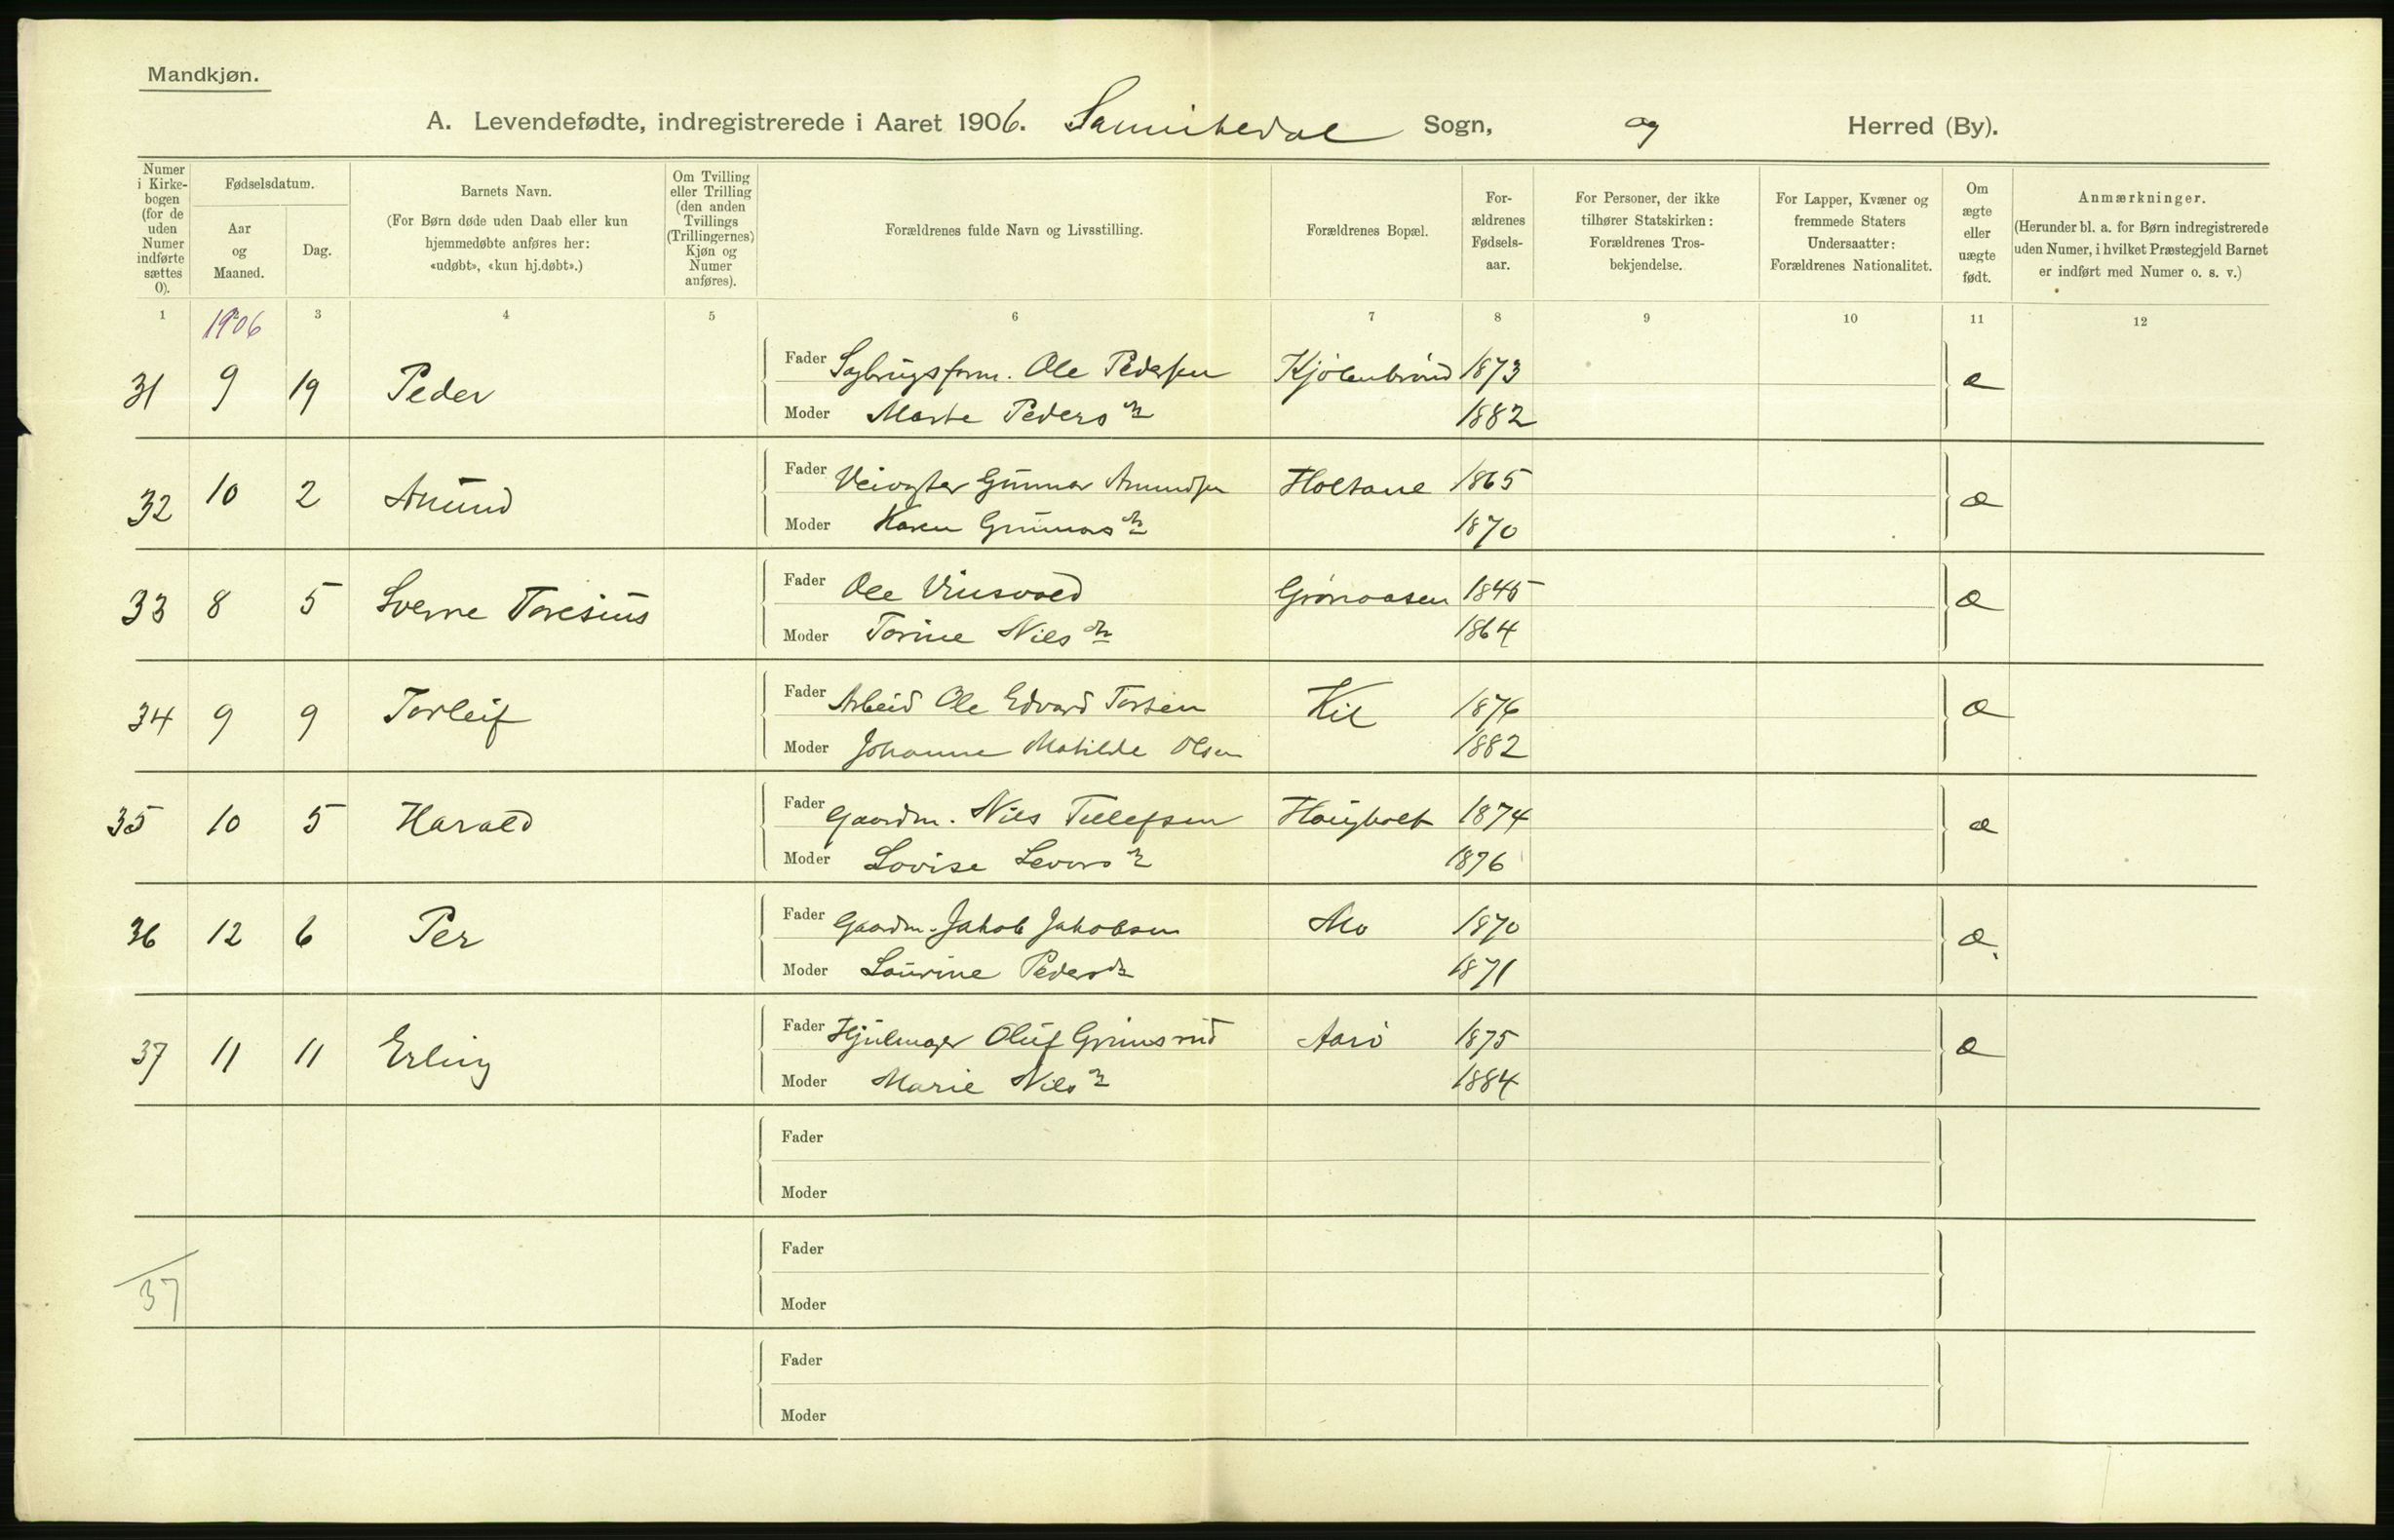 Mandkjøn.
A. Levendefødte, indregistrerede i Aaret 1906. Sannikedal Sogn, og Herred (By).
Numer i Kirkebogen (for de uden Numer indførte sættes 0).
Fødselsdatum.
Aar og Maaned.
Dag.
Barnets Navn.
(For Børn døde uden Daab eller kun hjemmedøbte anføres her: «udøbt», «kun hj.døbt».)
Om Tvilling eller Trilling (den anden Tvillings (Trillingernes) Kjøn og Numer anføres).
Forældrenes fulde Navn og Livsstilling.
Forældrenes Bopæl.
Forældrenes Fødselsaar.
For Personer, der ikke tilhører Statskirken: Forældrenes Trosbekjendelse.
For Lapper, Kvæner og fremmede Staters Undersaatter: Forældrenes Nationalitet.
Om ægte eller uægte født.
Anmærkninger.
(Herunder bl. a. for Børn indregistrerede uden Numer, i hvilket Præstegjeld Barnet er indført med Numer o. s. v.)
1 2 3 4 5 6 7 8 9 10 11 12
1906
31 9 19 Peder Fader Sagbrugsform. Ole Pedersen 1873 æ
Moder Marte Peders dr 1882
32 10 2 Anund Fader Veivogter Gunnar Anundsen Holtane 1865 æ
Moder Karen Gunnars dr 1870
33 8 5 Sverre Toresius Fader Ole Vinsvold Grønaasen 1845 æ
Moder Torine Nils dr 1864
34 9 9 Torleif Fader Arbeid Ole Edvard Torsen Kil 1876 æ
Moder Johanne Matilde Olsen 1882
35 10 5 Harald Fader Gaardm. Nils Tellefsen Haugholt 1874 æ
Moder Lovise Levors dr 1876
36 12 6 Per Fader Gaardm. Jakob Jakobsen Mo 1870 æ.
Moder Laurine Pedersdr 1871
37 11 11 Erling Fader Hjulmager Oluf Grimsrud Aarø 1875 æ
Moder Marie Nils dr 1884
Fader
Moder
Fader
37
Moder
Fader
Moder